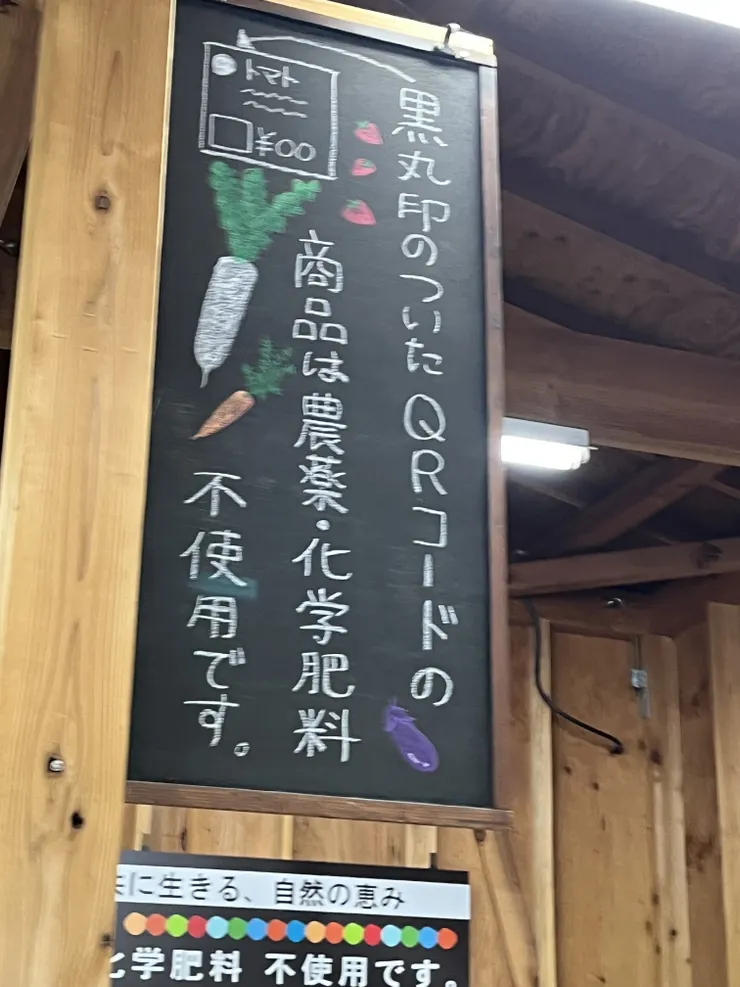 黒丸印のついたQRコードの
商品は農薬・化学肥料
不使用です。
トマト
¥00
に生きる、自然の恵み
学肥料 不使用です。